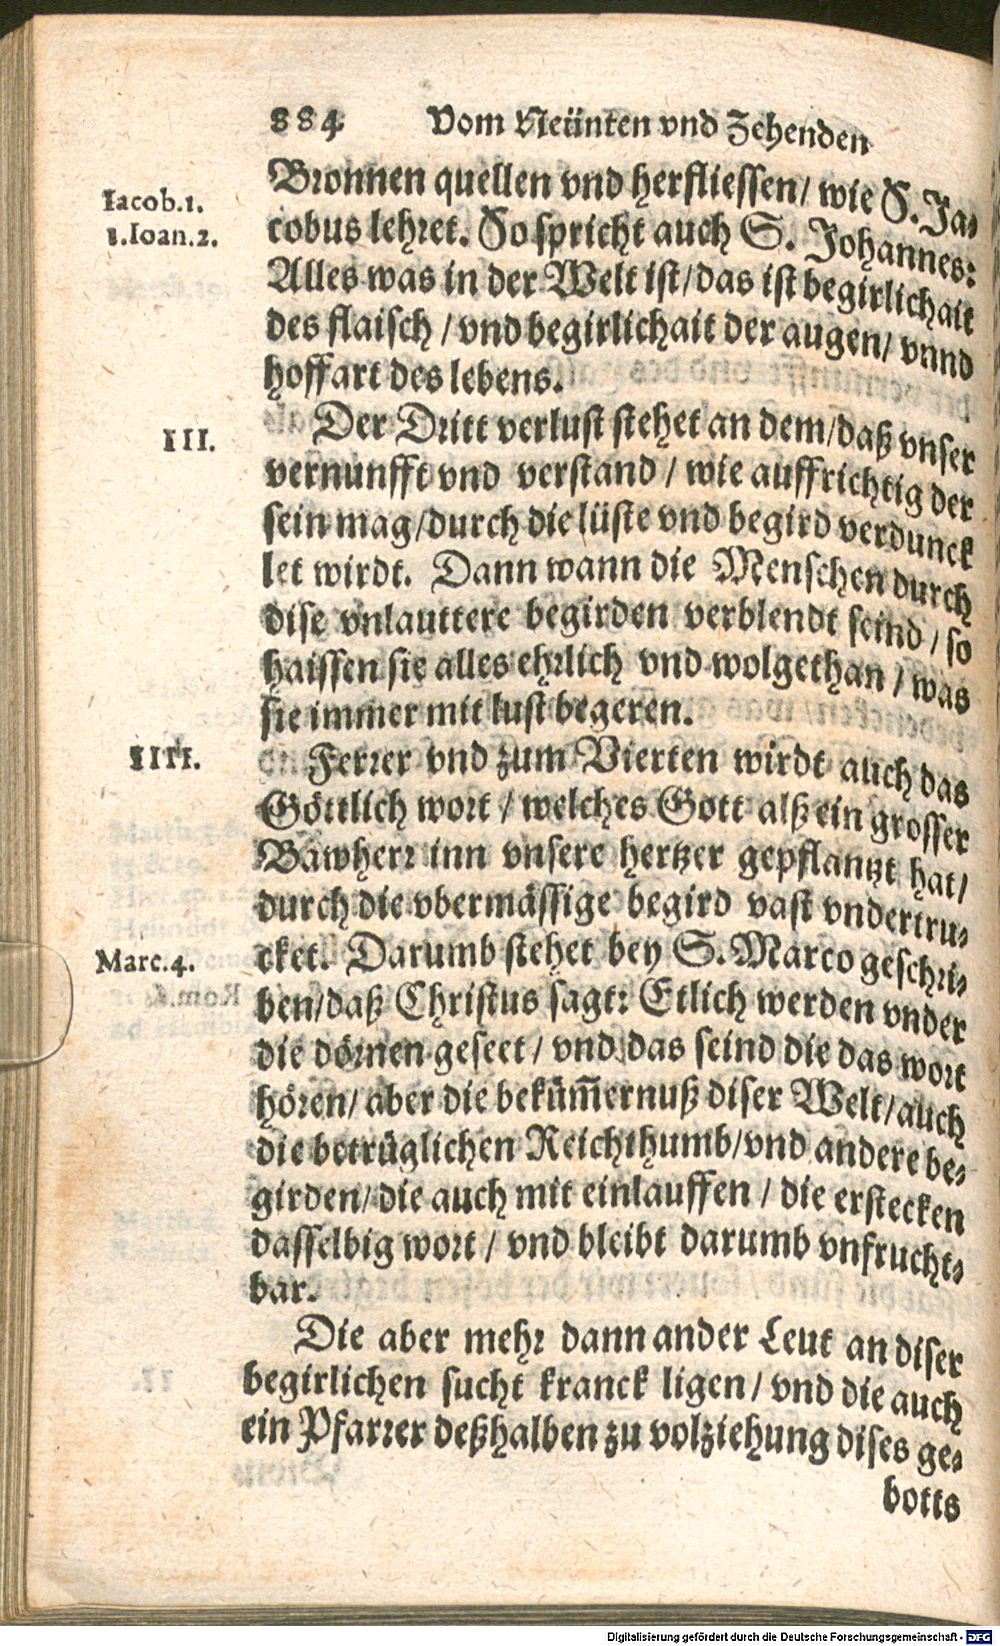 884 Vom Neünten vnd Zehenden
Bronnen quellen vnd herfliessen/ wie S. Ja-
Iacob.1.
cobus lehret. So spricht auch S. Johannes:
1.Ioan.2.
Alles was in der Welt ist/das ist begirlichait
des flaisch / vnd begirlichait der augen/ vnnd
hoffart des lebens.
III.
Der Dritt verlust stehet an dem/daß vnser
vernunfft vnd verstand / wie auffrichtig der
sein mag/durch die lüste vnd begird verdunck
let wirdt. Dann wann die Menschen durch
dise vnlauttere begirden verblendt seind / so
haissen sie alles ehrlich vnd wolgethan / was
sie immer mit lust begeren.
IIII.
Ferrer vnd zum Vierten wirdt auch das
Göttlich wort / welches Gott alß ein grosser
Bawherr inn vnsere hertzer gepflantzt hat/
durch die vbermässige begird vast vndertru-
Marc.4.
cket. Darumb stehet bey S. Marco geschri-
ben/daß Christus sagt: Etlich werden vnder
die dörnen geseet / vnd das seind die das wort
hören/ aber die bekūm̄ernuß diser Welt/auch
die betrüglichen Reichthumb/vnd andere be-
girden/die auch mit einlauffen / die erstecken
dasselbig wort / vnd bleibt darumb vnfrucht-
bar.
Die aber mehr dann ander Leut an diser
begirlichen sucht kranck ligen / vnd die auch
ein Pfarrer deßhalben zu volziehung dises ge-
botts
Digitalisierung gefördert durch die Deutsche Forschungsgemeinschaft - DFG